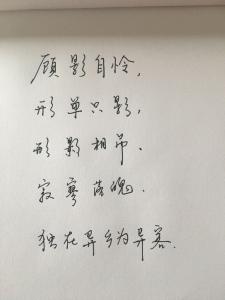 顾影自怜，
形单只影，
形影相吊．
寂寥落魄．
独在异乡为异客．